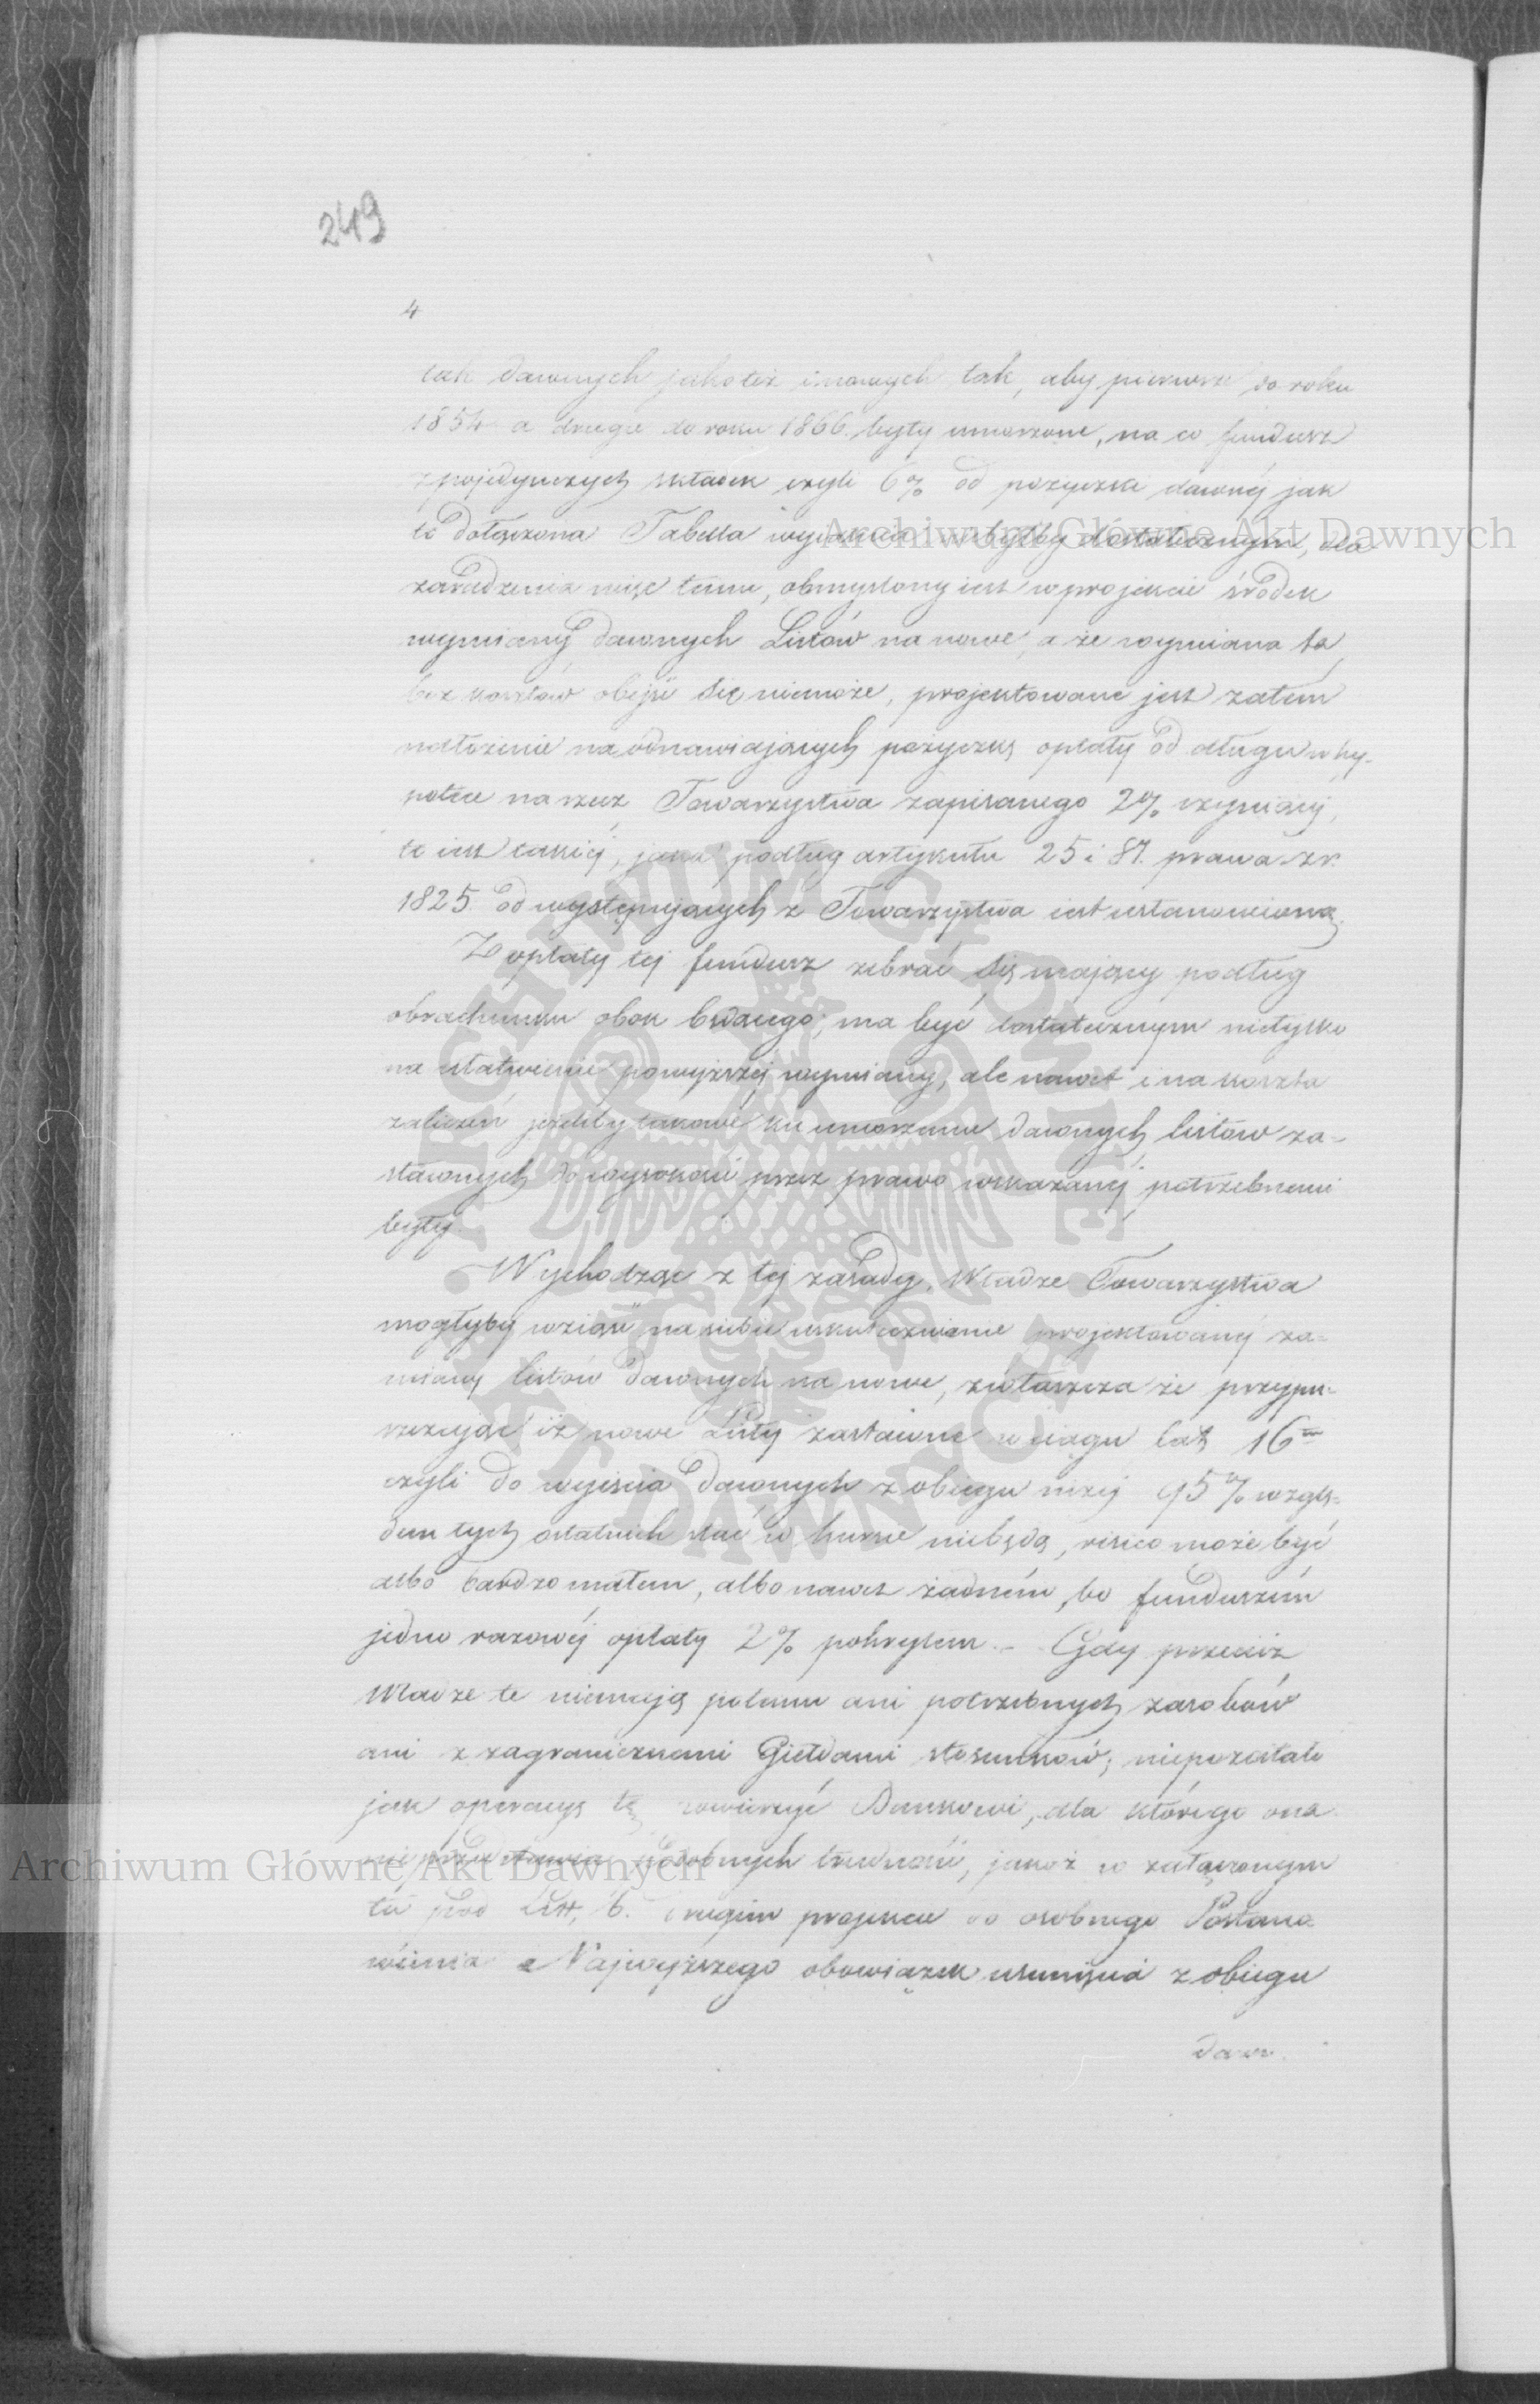 249
4
tak dawnych jakoteż i nowych tak, aby pierwsze do roku
1854 a drugie do roku 1866. były umorzone, na co fundusz
z pojedynczych składek czyli 6% od pożyczki dawnéj jak
to dołączona Tabella wykazuie niebyłby dostatecznym, dla
zaradzenia więc temu, obmyślony iest w projekcie środek
wymiany dawnych Listów na nowe, a że wymiana ta
bez kosztów obejść się niemoże, projektowane jest zatém
nałożenie na odnawiających pożyczkę opłaty od długu w hy-
potece na rzecz Towarzystwa zapisanego 2% czyniącéj,
to iest takiéj, jaka podług artykułu 25 i 87. prawa z r.
1825. od występujących z Towarzystwa iest ustanowioną.
Z opłaty téj fundusz zebrać się mający podług
obrachunku obok będącego, ma być dostatecznym nietylko
na ułatwienie powyższéj wymiany, ale nawet i na koszta
zaliczeń jeżeliby takowe ku umorzeniu dawnych listów za-
stawnych do wysokości przez prawo wskazanéj potrzebnemi
były.
Wychodząc z téj zasady, Władze Towarzystwa
mogłyby wziąść na siebie uskutecznienie projektowanéj za-
miany listów dawnych na nowe, zwłaszcza że przypu-
szczając iż nowe Listy zastawne w ciągu lat 16tu
czyli do wyjścia dawnych z obiegu niżéj 95% wzglę-
dem tych ostatnich stać w kursie niebędą, risico może być
albo bardzo małem, albo nawet żadném, bo funduszém
jedno razowéj opłaty 2% pokrytem. – Gdy przecież
Władze te niemają potemu ani potrzebnych zasobów
ani z zagranicznemi Giełdami stosunków; niepozostało
jak operacyę tę powierzyć Bankowi, dla którego ona
nieprzedstawia podobnych trudności, jakoż w załączonym
tu pod Litt. b. drugim projekcie do osobnego Postano-
wienia Najwyższego obowiązek usunięcia z obiegu
dawn.
Archiwum Główne Akt Dawnych
Archiwum Główne Akt Dawnych
ARCHIWUM GŁÓWNE AKT DAWNYCH